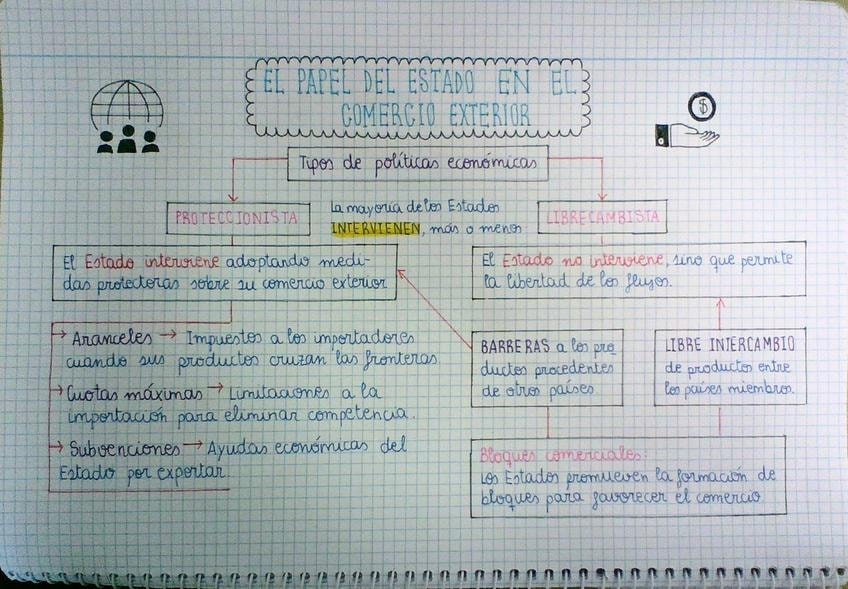 EL PAPEL DEL ESTADO EN EL
COMERCIO EXTERIOR
$
Tipos de políticas económicas
PROTECCIONISTA
La mayoría de los Estados
INTERVIENEN, más o menos
LIBRECAMBISTA
El Estado interviene adoptando medi-
das protectoras sobre su comercio exterior
El Estado no interviene, sino que permite
la libertad de los flujos.
→ Aranceles → Impuestos a los importadores
cuando sus productos cruzan las fronteras
→ Cuotas máximas → Limitaciones a la
importación para eliminar competencia.
→ Subvenciones → Ayudas económicas del
Estado por exportar
BARRERAS a los pro
ductos procedentes
de otros países
LIBRE INTERCAMBIO
de productos entre
los países miembros.
Bloques comerciales:
Los Estados promueven la formación de
bloques para favorecer el comercio